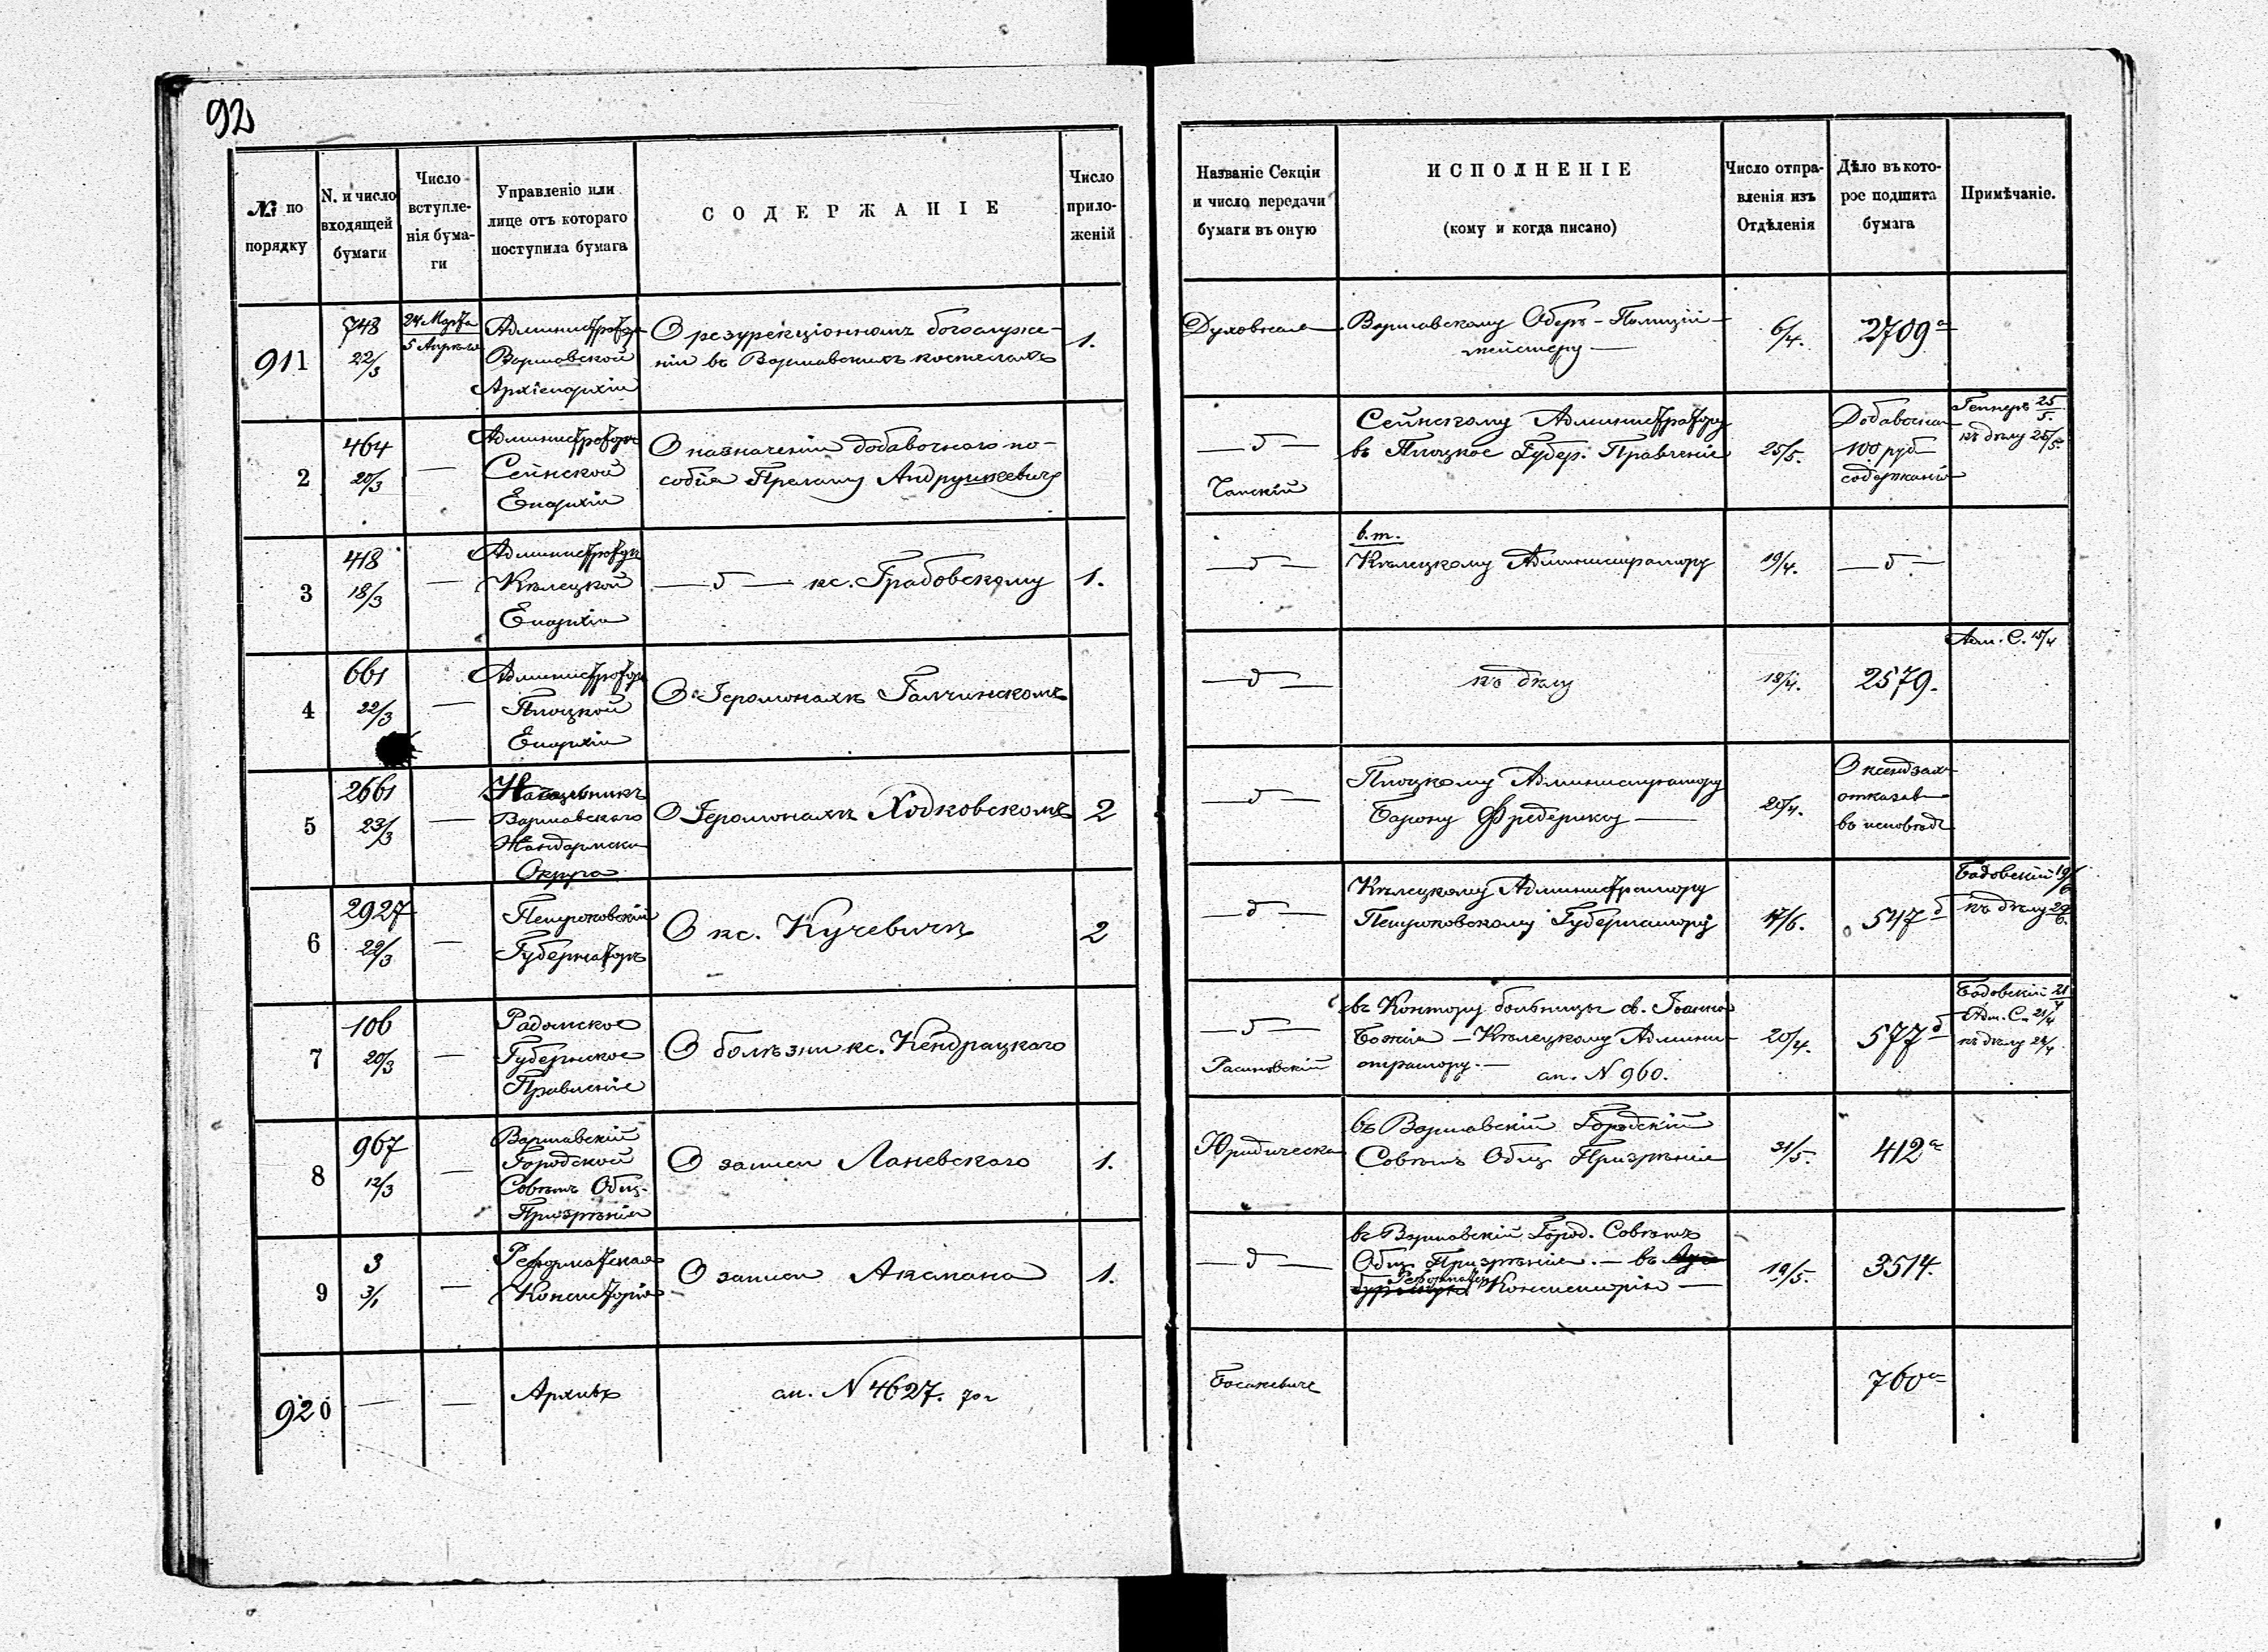 92
№ по порядку
N. и число входящей бумаги
Число вступленія бумаги
Управленіе или лице отъ котораго поступила бумага
СОДЕРЖАНІЕ
Число приложеній
Названіе Секціи и число передачи бумаги въ оную
ИСПОЛНЕНІЕ
(кому и когда писано)
Число отправленія изъ Отдѣленія
Дѣло въ которое подшита бумага
Примѣчаніе.
911
748
22/3
24 Марта
5 Апрѣля
Администраторъ
Варшавской
Архіепархіи
О резурекціонномъ богослуже-
ніи въ Варшавскихъ костелахъ
1.
Духовная
Варшавскому Оберъ-Полицій-
мейстеру —
6/4.
2709 а
2
464
20/3
—
Администраторъ
Сейнской
Епархіи
О назначеніи добавочнаго по-
собія Прелату Андрушкевичу
— д —
Сейнскому Администратору
въ Плоцкое Губер. Правленіе
25/5.
Добавочн
100 руб
содержаній
25/5.
къ дѣлу 25/5.
3
418
18/3
—
Администраторъ
Кѣлецкой
Епархіи
— д — кс. Грабовскому
1.
— д —
в.т.
Кѣлецкому Администратору
19/4.
— д —
4
661
22/3
—
Администраторъ
Плоцкой
Епархіи
О Іеромонахѣ Галчинскомъ
— д —
къ дѣлу
18/4.
2579.
Адм. С. 15/4
5
2661
23/3
—
Начальникъ
Варшавскаго
Жандармски
Округа
О Іеромонахѣ Ходковскомъ
2
— д —
Плоцкому Администратору
Барону Фредериксу —
20/4.
О ксендзахъ
отказав
въ исповѣди
6
2927
22/3
—
Петроковскій
Губернаторъ
О кс. Кучевичѣ
2
— д —
Кѣлецкому Администратору
Петроковскому Губернатору
17/6.
547 б
Бадовскій 19/6
къ дѣлу 20/6.
7
106
20/3
—
Радомское
Губернское
Правленіе
О болѣзни кс. Кендрацкаго
— д —
въ Контору больницы св. Іоанна
Божія — Кѣлецкому Админи-
стратору. — ап. N 960.
20/4.
577 б
Бадовскій 21/4
Адм. С. 21/4
къ дѣлу 24/4
8
967
12/3
—
Варшавскій
Городской
Совѣтъ Общ.
Призрѣнія
О записи Ланевскаго
1.
Юридическа
въ Варшавскій Городскій
Совѣтъ Общ Призрѣнія
31/5.
412 а
9
3
3/1
—
Реформатская
Консисторія
О записи Аксмана
1.
— д —
въ Варшавскій Город. Совѣтъ
Общ. Призрѣнія. — въ
Реформатск Консисторію —
19/5.
3514.
920
—
—
Архивъ
ап. N 4627. 70 г
760 а